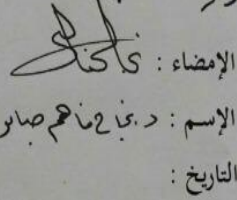 الإمضاء :
الإسم : د. نجاح ماهم صابر
التاريخ :